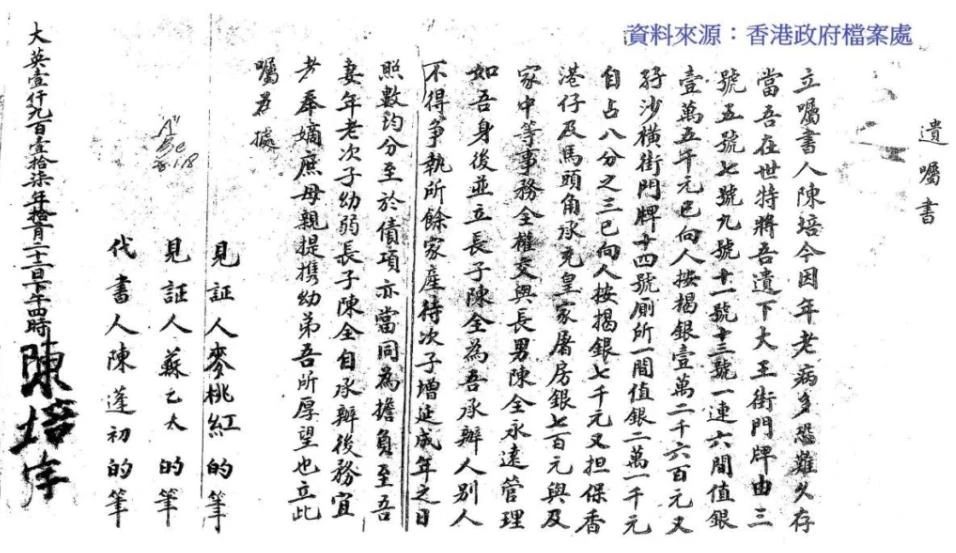 資料來源：香港政府檔案處
遺囑書
立囑書人陳培今因年老病多恐難久存
當吾在世特將吾遺下大王街門牌由三
號五號七號九號十一號十三號一連六間值銀
壹萬五千元已向人按揭銀壹萬二千六百元又
孖沙橫街門牌十四號厠所一間值銀二萬一千元
自占八分之三已向人按揭銀七千元又担保香
港仔及馬頭角承充皇家屠房銀七百元與及
家中等事務全權交與長男陳全永遠管理
如吾身後並立長子陳全為吾承辦人別人
不得争執所餘家產待次子增延成年之日
照數均分至於債項亦當同為擔負至吾
妻年老次子幼弱長子陳全自承辦後務宜
孝奉嫡庶母親提携幼弟吾所厚望也立此
囑為據
見証人麥桃紅的筆
見証人蘇乙太的筆
代書人陳蓬初的筆
大英壹仟九百壹拾柒年拾月二十二日下午四時
陳培字